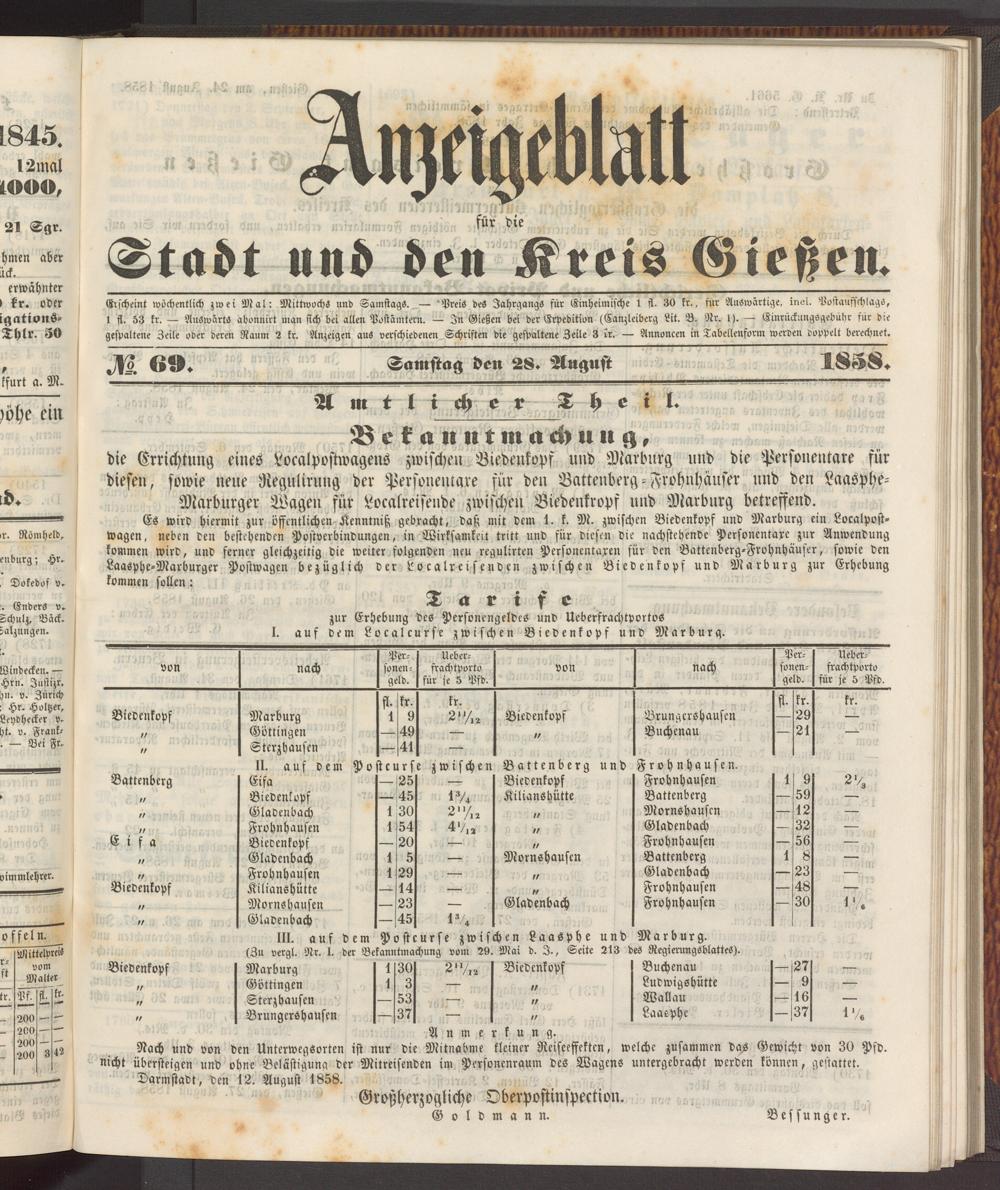 1845.
12mal
4000,
21 Sgr.
hmen aber
ück.
erwähnter
kr. oder
igations-
Thlr. 50
kfurt a. M.
höhe ein
nd.
or. Römheld,
enburg; Hr.
Dokedof v.
Enders v.
Schulz, Bäck.
Salzungen.
Windecken. —
Hrn. Justizr.
hn. v. Zürich
Hr. Holtzer,
Leydhecker v.
ht. v. Frank-
. — Bei Fr.
wimmlehrer.
offeln.
Mittelpreis
vom
Malter
Pf. fl. kr.
200 — —
200 — —
200 — —
200 3 42
Anzeigeblatt
für die
Stadt und den Kreis Gießen.
Erscheint wöchentlich zwei Mal: Mittwochs und Samstags. — Preis des Jahrgangs für Einheimische 1 fl. 30 kr., für Auswärtige, incl. Postaufschlags,
1 fl. 53 kr. — Auswärts abonnirt man sich bei allen Postämtern. — In Gießen bei der Expedition (Canzleiberg Lit. B. Nr. 1). — Einrückungsgebühr für die
gespaltene Zeile oder deren Raum 2 kr. Anzeigen aus verschiedenen Schriften die gespaltene Zeile 3 kr. — Annoncen in Tabellenform werden doppelt berechnet.
№ 69. Samstag den 28. August 1858.
Amtlicher Theil.
Bekanntmachung,
die Errichtung eines Localpostwagens zwischen Biedenkopf und Marburg und die Personentare für
diesen, sowie neue Regulirung der Personentare für den Battenberg-Frohnhäuser und den Laasphe-
Marburger Wagen für Localreisende zwischen Biedenkropf und Marburg betreffend.
Es wird hiermit zur öffentlichen Kenntniß gebracht, daß mit dem 1. k. M. zwischen Biedenkopf und Marburg ein Localpost-
wagen, neben den bestehenden Postverbindungen, in Wirksamkeit tritt und für diesen die nachstehende Personentare zur Anwendung
kommen wird, und ferner gleichzeitig die weiter folgenden neu regulirten Personentaren für den Battenberg-Frohnhäuser, sowie den
Laasphe-Marburger Postwagen bezüglich der Localreisenden zwischen Biedenkopf und Marburg zur Erhebung
kommen sollen:
Tarife
zur Erhebung des Personengeldes und Ueberfrachtportos
I. auf dem Localcurse zwischen Biedenkopf und Marburg.
von nach Per- Ueber- von nach Per- Ueber-
sonen- frachtporto sonen- frachtporto
geld. für je 5 Pfd. geld. für je 5 Pfd.
fl. kr. kr. fl. kr. kr.
Biedenkopf Marburg 1 9 2 11/12 Biedenkopf Brungershausen — 29 —
„ Göttingen — 49 — „ Buchenau — 21 —
„ Sterzhausen — 41 —
II. auf dem Postcurse zwischen Battenberg und Frohnhausen.
Battenberg Eifa — 25 — Biedenkopf Frohnhausen 1 9 2 1/3
„ Biedenkopf — 45 1 3/4 Kilianshütte Battenberg — 59 —
„ Gladenbach 1 30 2 11/12 „ Mornshausen — 12 —
„ Frohnhausen 1 54 4 1/12 „ Gladenbach — 32 —
Eifa Biedenkopf — 20 — „ Frohnhausen — 56 —
„ Gladenbach 1 5 — Mornshausen Battenberg 1 8 —
„ Frohnhausen 1 29 — „ Gladenbach — 23 —
Biedenkopf Kilianshütte — 14 — „ Frohnhausen — 48 —
„ Mornshausen — 23 — Gladenbach Frohnhausen — 30 1 1/6
„ Gladenbach — 45 1 3/4
III. auf dem Postcurse zwischen Laasphe und Marburg.
(Zu vergl. Nr. I. der Bekanntmachung vom 29. Mai d. J., Seite 213 des Regierungsblattes).
Biedenkopf Marburg 1 30 2 11/12 Biedenkopf Buchenau — 27 —
„ Göttingen 1 3 — „ Ludwigshütte — 9 —
„ Sterzhausen — 53 — „ Wallau — 16 —
„ Brungershausen — 37 — „ Laasphe — 37 1 1/6
Anmerkung.
Nach und von den Unterwegsorten ist nur die Mitnahme kleiner Reiseeffekten, welche zusammen das Gewicht von 30 Pfd.
nicht übersteigen und ohne Belästigung der Mitreisenden im Personenraum des Wagens untergebracht werden können, gestattet.
Darmstadt, den 12. August 1858.
Großherzogliche Oberpostinspection.
Goldmann. Bessunger.